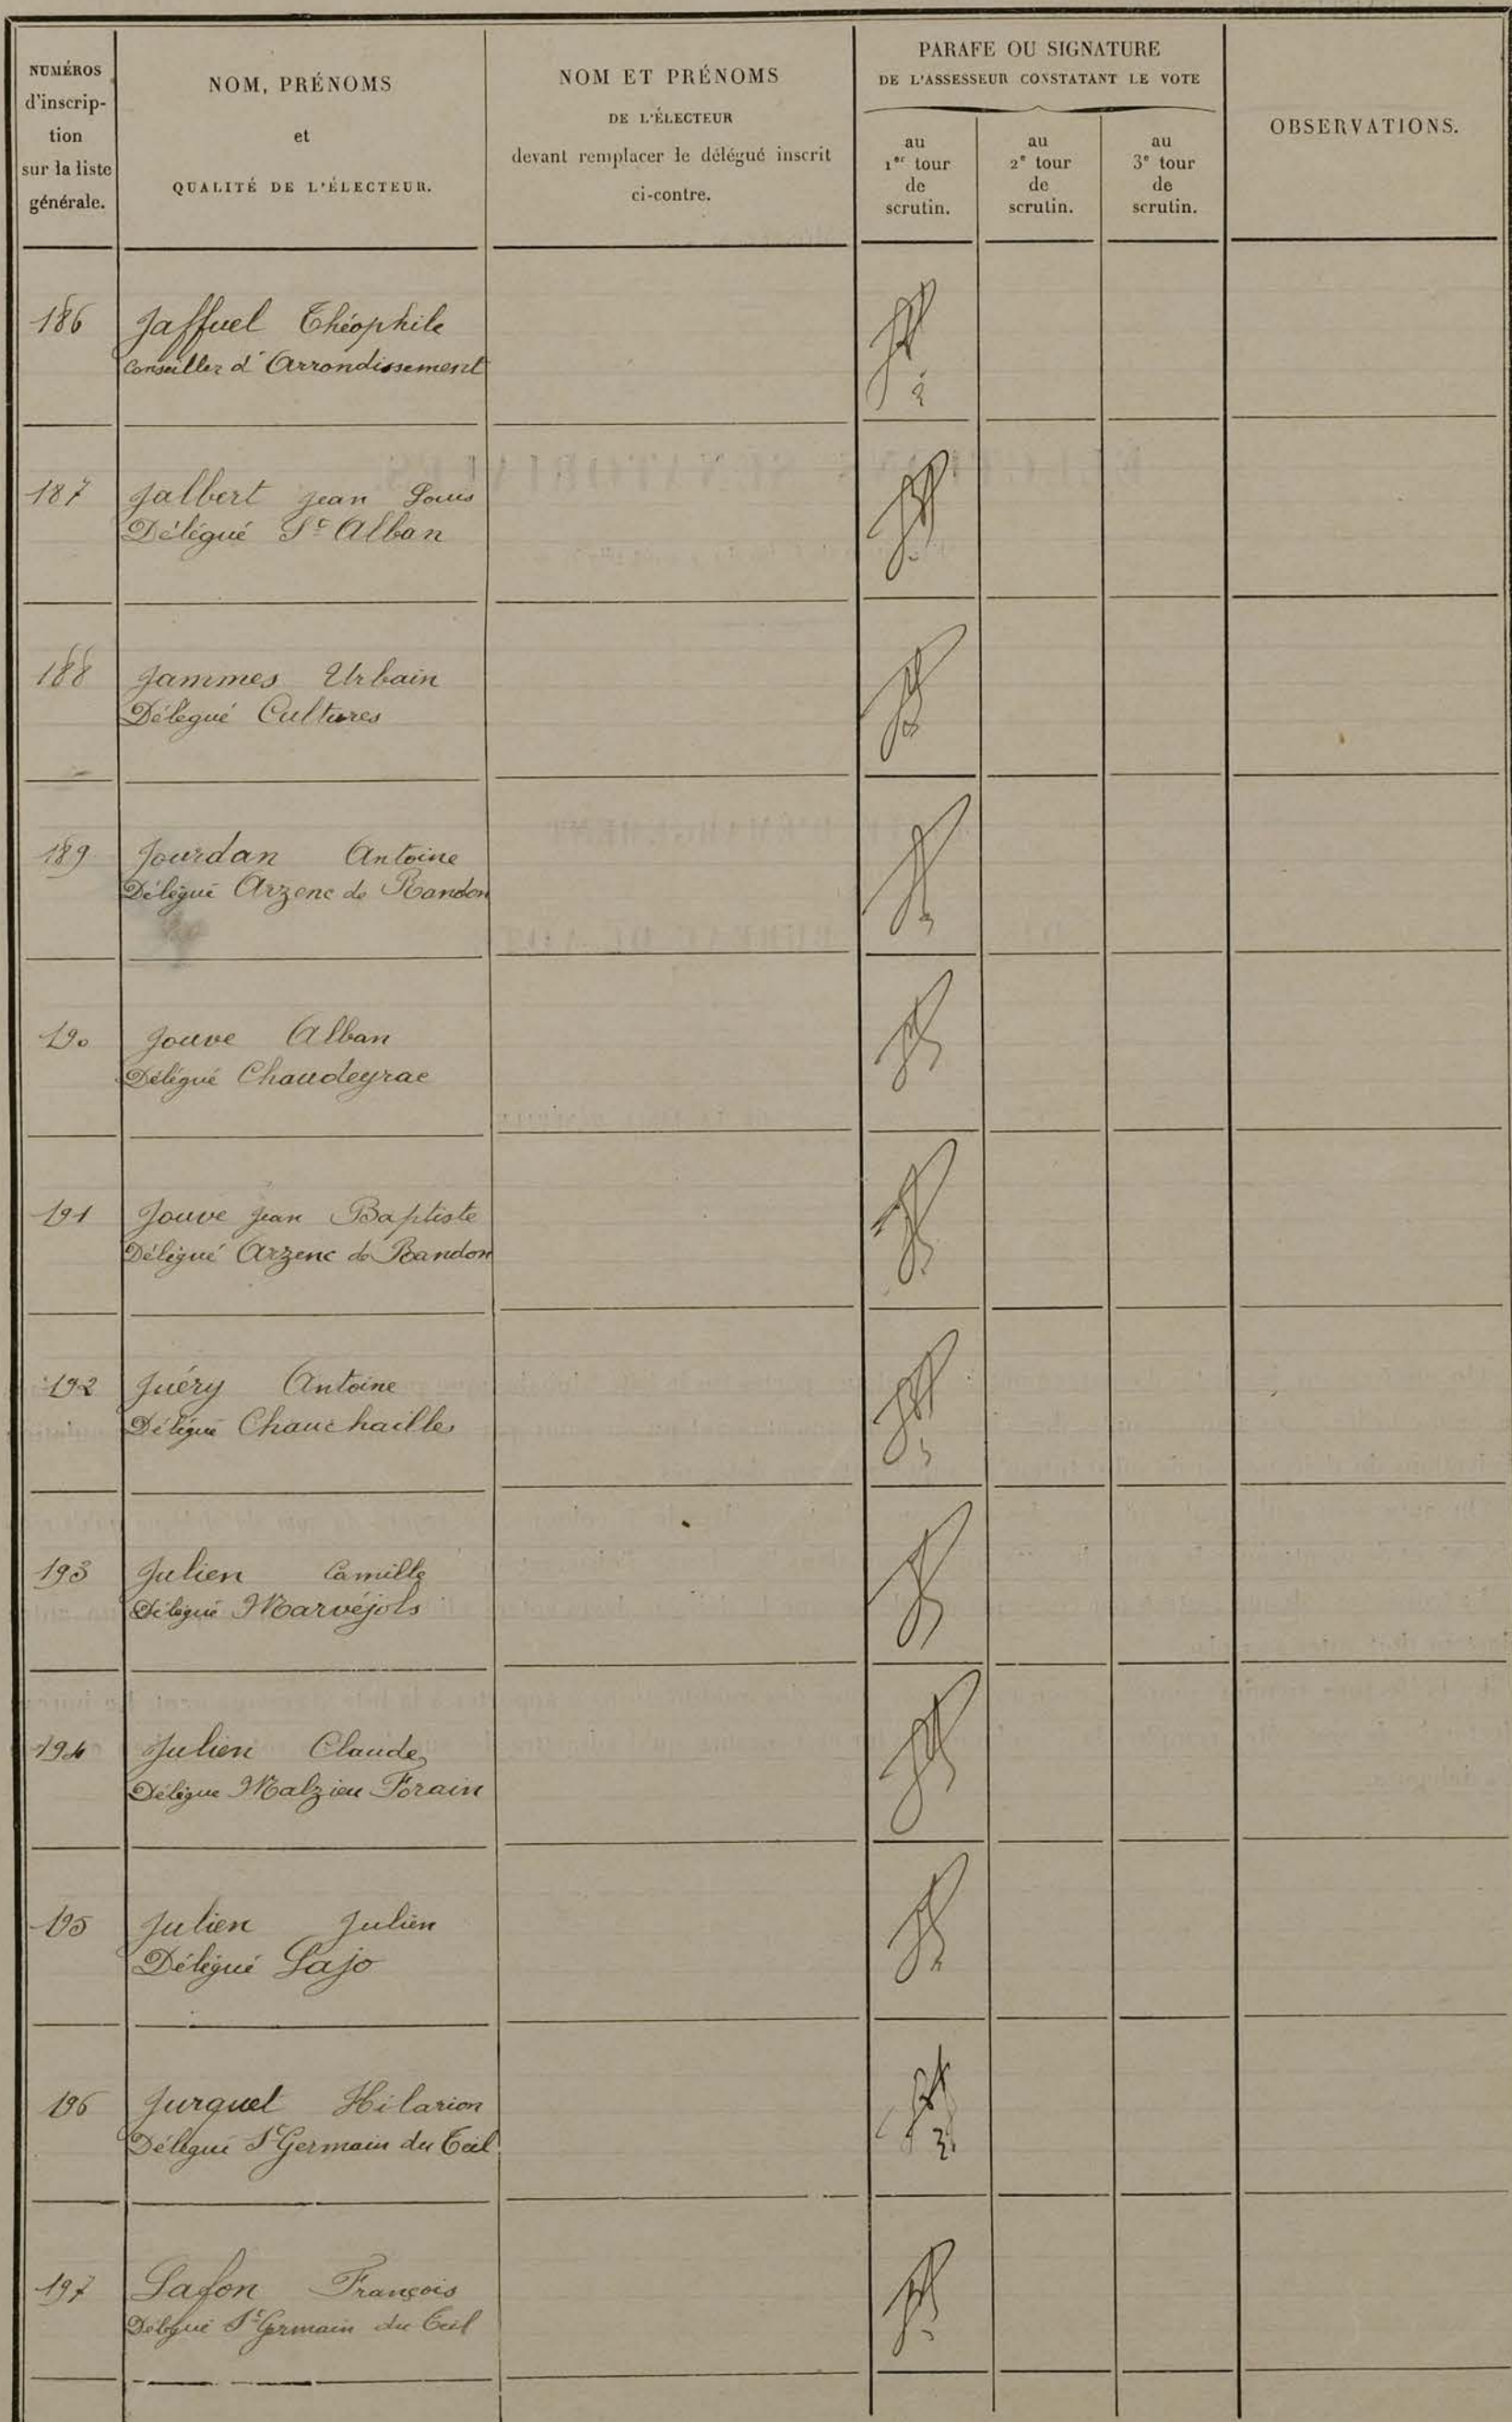 NUMÉROS
d'inscrip-
tion
sur la liste
générale.
NOM, PRÉNOMS
et
QUALITÉ DE L'ÉLECTEUR.
NOM ET PRÉNOMS
DE L'ÉLECTEUR
devant remplacer le délégué inscrit
ci-contre.
PARAFE OU SIGNATURE
DE L'ASSESSEUR CONSTATANT LE VOTE
au
1er tour
de
scrutin.
au
2e tour
de
scrutin.
au
3e tour
de
scrutin.
OBSERVATIONS.
186 Jaffuel Théophile
Conseiller d'Arrondissement
187 Jalbert Jean Louis
Délégué St Alban
188 Jammes Urbain
Délégué Cultures
189 Jourdan Antoine
Délégué Arzenc de Randon
190 Jouve Alban
Délégué Chaudeyrac
191 Jouve Jean Baptiste
Délégué Arzenc de Randon
192 Juéry Antoine
Délégué Chauchailles
193 Julien Camille
Délégué Marvéjols
194 Julien Claude
Délégué Malzieu Forain
195 Julien Julien
Délégué Lajo
196 Jurquet Hilarion
Délégué St Germain du Teil
197 Lafon François
Délégué St Germain du Teil